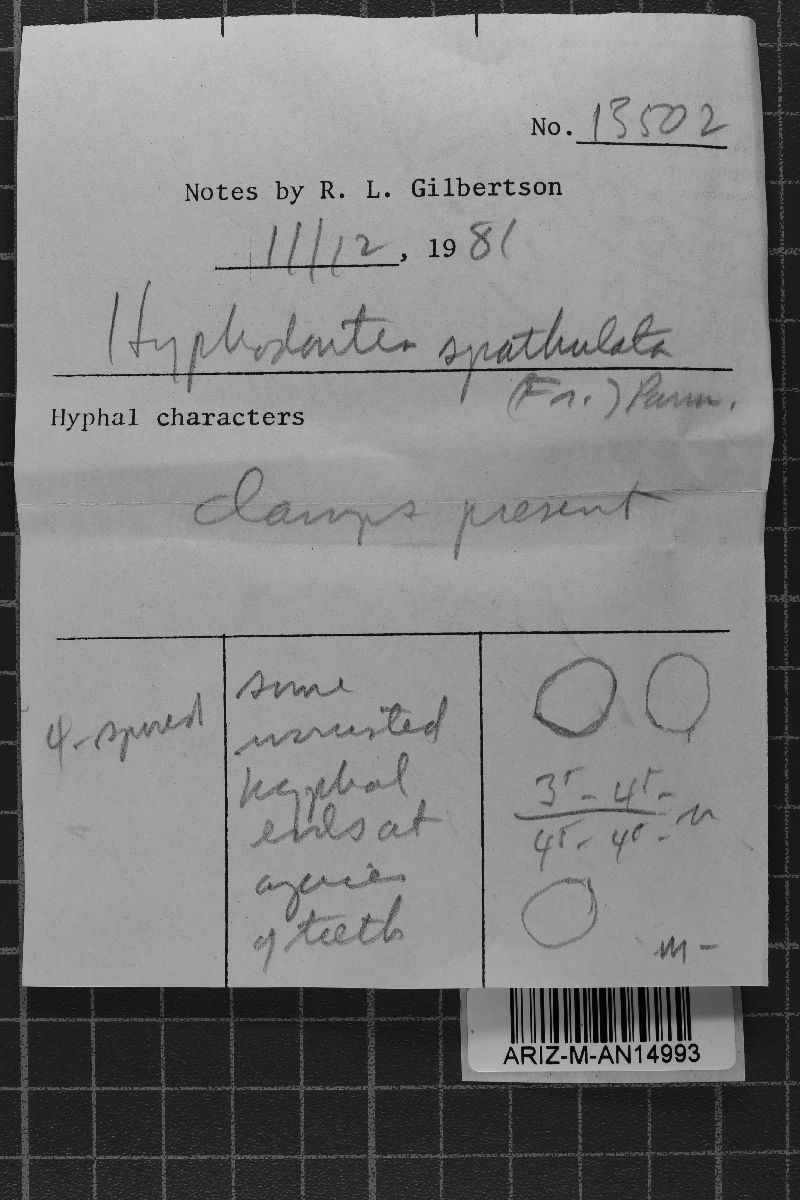 No. 13502
Notes by R. L. Gilbertson
11/12, 1981
Hyphodontia spathulata
(Fr.) Parm.
Hyphal characters
Clamps present
4-spored
some
incrusted
hyphal
ends at
apices
of teeth
m-
ARIZ-M-AN14993